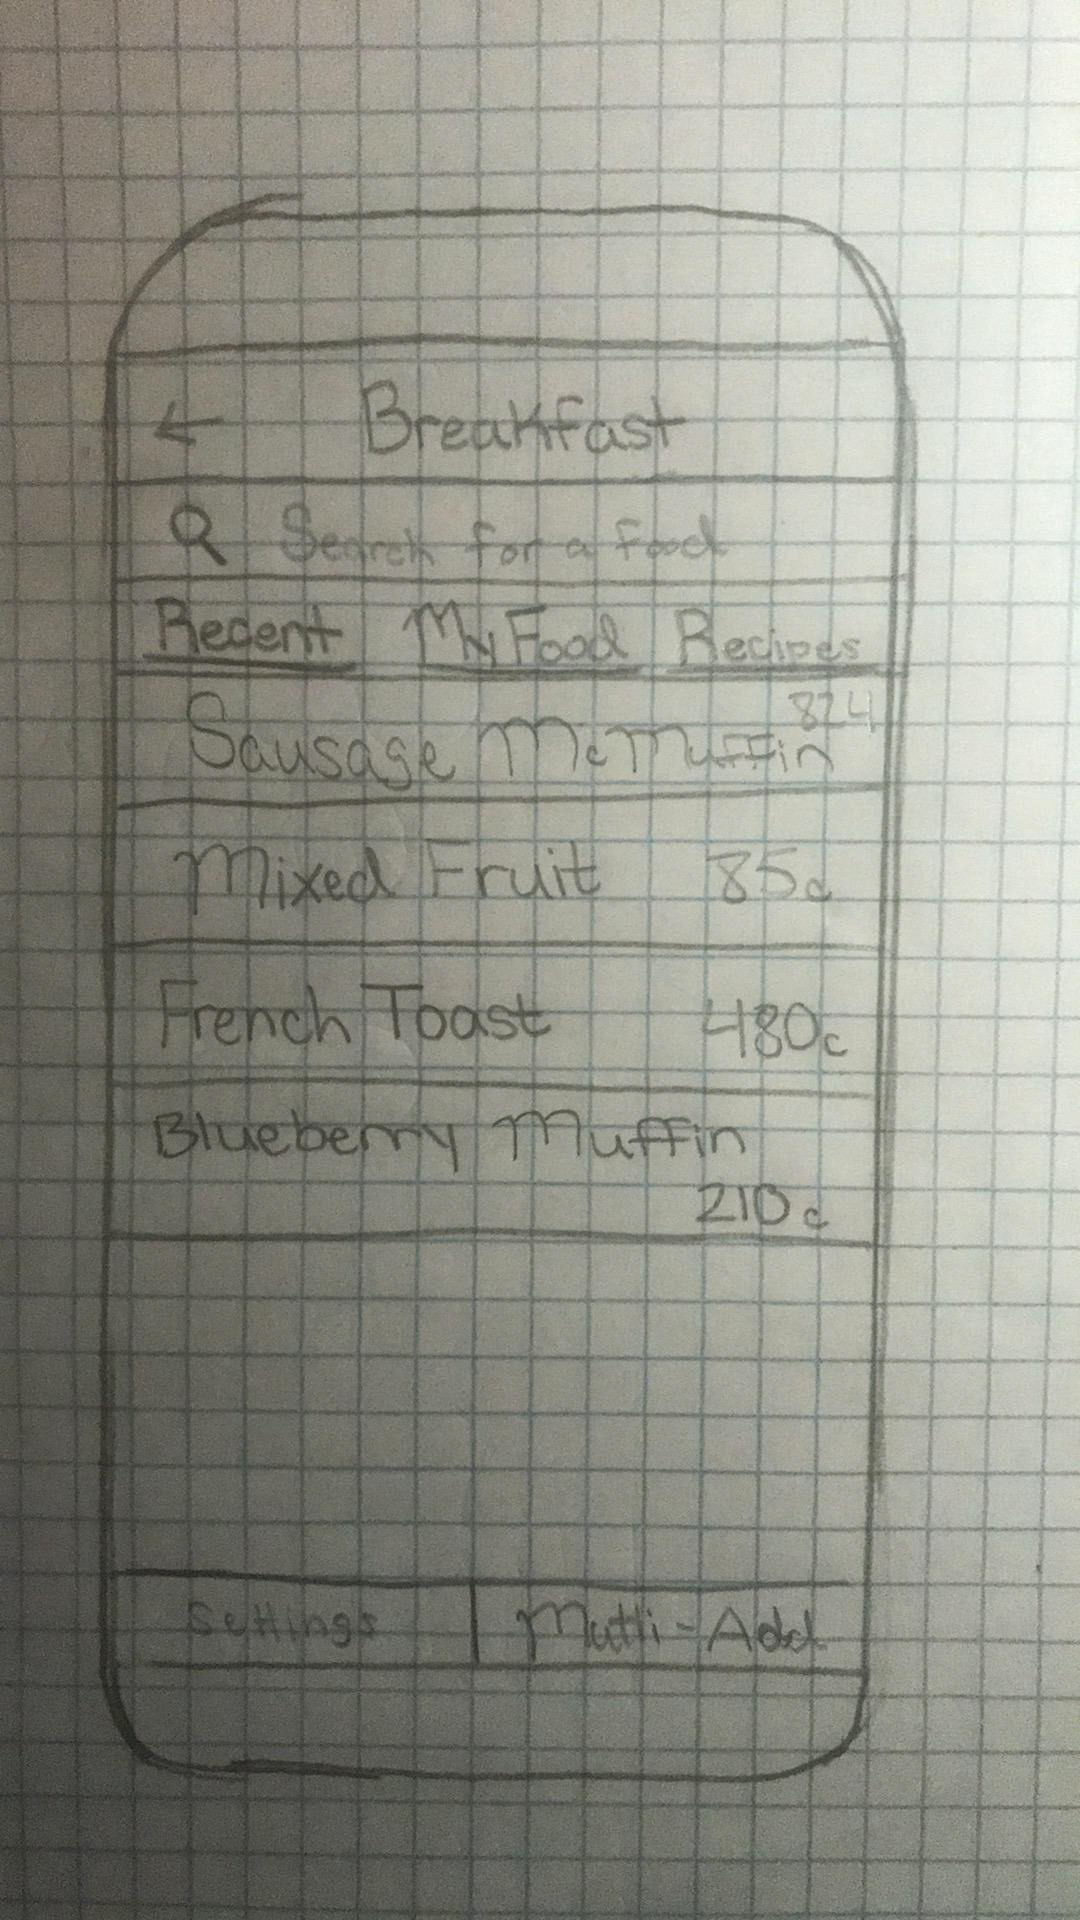 ← Breakfast
Search for a food
Recent My Food Recipes
824
Sausage McMuffin
Mixed Fruit 85c
French Toast 480c
Blueberry Muffin
210c
Settings Mutli-Add